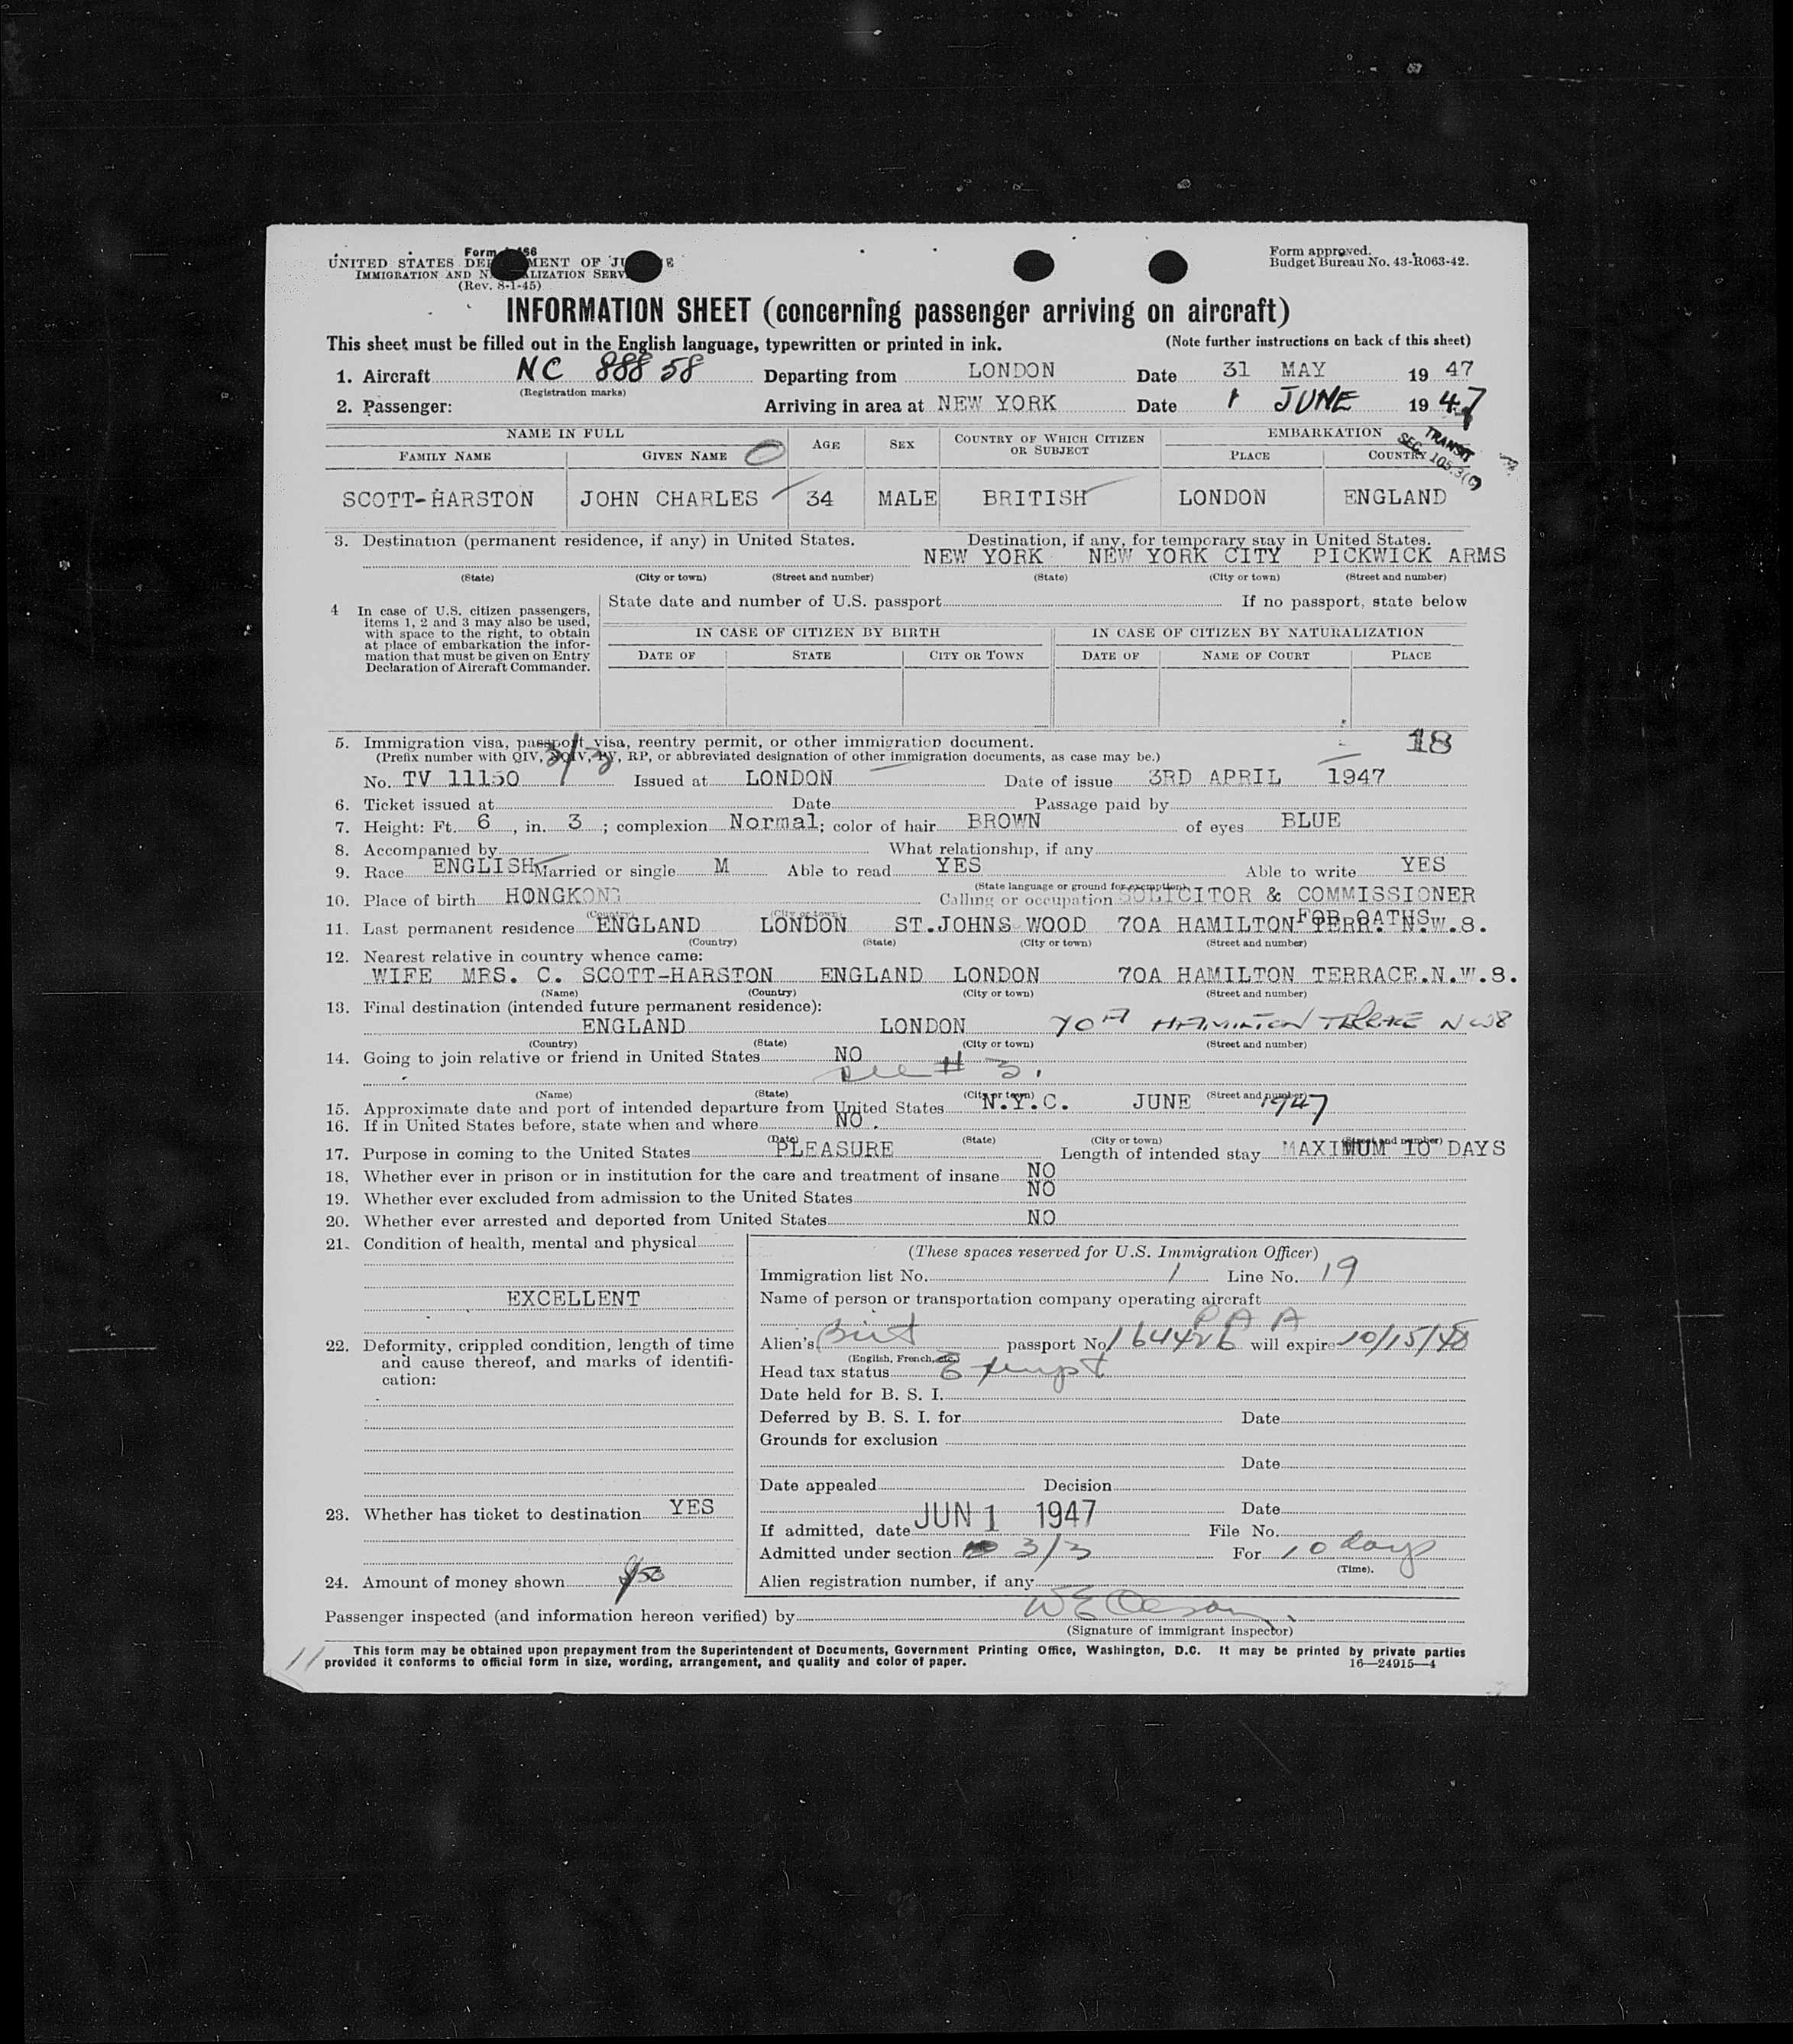 Form
UNITED STATES DEPARTMENT OF JUSTICE
IMMIGRATION AND NATURALIZATION SERVICE
(Rev. 8-1-45)
Form approved.
Budget Bureau No. 43-R063-42.
INFORMATION SHEET (concerning passenger arriving on aircraft)
This sheet must be filled out in the English language, typewritten or printed in ink. (Note further instructions on back of this sheet)
1. Aircraft NC 88858 Departing from LONDON Date 31 MAY 1947
(Registration marks)
2. Passenger: Arriving in area at NEW YORK Date 1 JUNE 1947
NAME IN FULL AGE SEX COUNTRY OF WHICH CITIZEN OR SUBJECT EMBARKATION
FAMILY NAME GIVEN NAME PLACE COUNTRY
TRANSIT
SEC. 105.3(c)
SCOTT-HARSTON JOHN CHARLES 34 MALE BRITISH LONDON ENGLAND
3. Destination (permanent residence, if any) in United States. Destination, if any, for temporary stay in United States.
NEW YORK NEW YORK CITY PICKWICK ARMS
(State) (City or town) (Street and number) (State) (City or town) (Street and number)
4 In case of U.S. citizen passengers,
items 1, 2 and 3 may also be used,
with space to the right, to obtain
at place of embarkation the infor-
mation that must be given on Entry
Declaration of Aircraft Commander.
State date and number of U.S. passport If no passport, state below
IN CASE OF CITIZEN BY BIRTH IN CASE OF CITIZEN BY NATURALIZATION
DATE OF STATE CITY OR TOWN DATE OF NAME OF COURT PLACE
18
5. Immigration visa, passport visa, reentry permit, or other immigration document.
(Prefix number with QIV, NQIV, PV, RP, or abbreviated designation of other immigration documents, as case may be.)
3/3
No. TV 11150 Issued at LONDON Date of issue 3RD APRIL 1947
6. Ticket issued at Date Passage paid by
7. Height: Ft. 6, in. 3; complexion Normal; color of hair BROWN of eyes BLUE
8. Accompanied by What relationship, if any
9. Race ENGLISH Married or single M Able to read YES Able to write YES
(State language or ground for exemption)
10. Place of birth HONGKONG Calling or occupation SOLICITOR & COMMISSIONER
(Country) (City or town) FOR OATHS
11. Last permanent residence ENGLAND LONDON ST.JOHNS WOOD 70A HAMILTON TERR. N.W.8.
(Country) (State) (City or town) (Street and number)
12. Nearest relative in country whence came:
WIFE MRS. C. SCOTT-HARSTON ENGLAND LONDON 70A HAMILTON TERRACE.N.W.8.
(Name) (Country) (City or town) (Street and number)
13. Final destination (intended future permanent residence):
ENGLAND LONDON 70A HAMILTON TERRACE NW8
(Country) (State) (City or town) (Street and number)
14. Going to join relative or friend in United States NO
see # 3.
(Name) (State) (City or town) (Street and number)
15. Approximate date and port of intended departure from United States N.Y.C. JUNE 1947
16. If in United States before, state when and where NO.
(Date) (State) (City or town) (Street and number)
17. Purpose in coming to the United States PLEASURE Length of intended stay MAXIMUM 10 DAYS
18. Whether ever in prison or in institution for the care and treatment of insane NO
19. Whether ever excluded from admission to the United States NO
20. Whether ever arrested and deported from United States NO
21. Condition of health, mental and physical
EXCELLENT
22. Deformity, crippled condition, length of time
and cause thereof, and marks of identifi-
cation:
23. Whether has ticket to destination YES
24. Amount of money shown $50
(These spaces reserved for U.S. Immigration Officer)
Immigration list No. 1 Line No. 19
Name of person or transportation company operating aircraft
P A A
Alien's Brit passport No. 164426 will expire 10/15/48
(English, French, etc.)
Head tax status Exempt
Date held for B. S. I.
Deferred by B. S. I. for Date
Grounds for exclusion
Date
Date appealed Decision
Date
If admitted, date JUN 1 1947 File No.
Admitted under section 3/3 For 10 days
(Time).
Alien registration number, if any
Passenger inspected (and information hereon verified) by W E Oeson
(Signature of immigrant inspector)
11
This form may be obtained upon prepayment from the Superintendent of Documents, Government Printing Office, Washington, D.C. It may be printed by private parties
provided it conforms to official form in size, wording, arrangement, and quality and color of paper. 16—24915—4